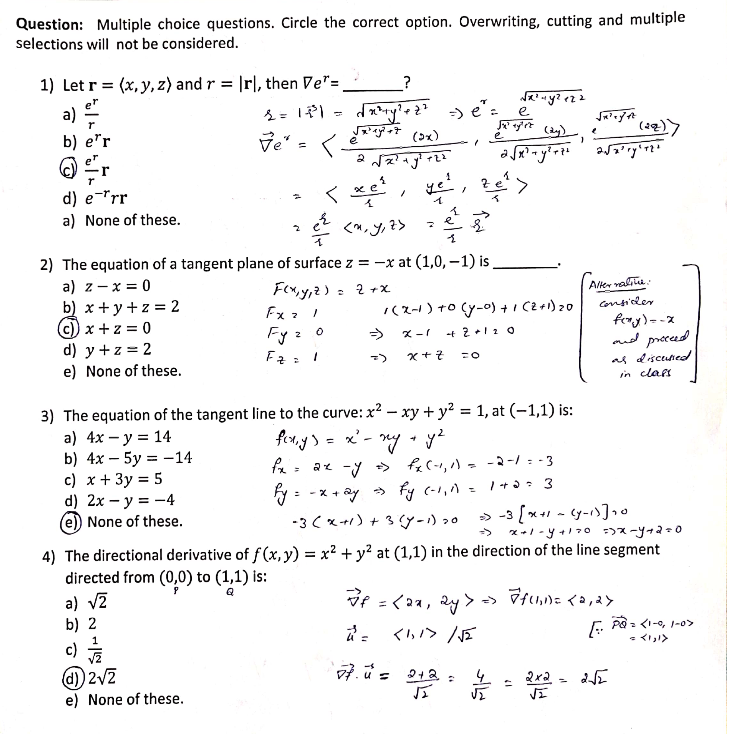 Question: Multiple choice questions. Circle the correct option. Overwriting, cutting and multiple
selections will not be considered.
1) Let r = ⟨x, y, z⟩ and r = |r|, then ∇eʳ= ________?
a) eʳ/r
b) eʳr
c) eʳ/r r
d) e⁻ʳrr
a) None of these.
r = |r⃗| = √(x²+y²+z²) ⇒ eʳ = e^√(x²+y²+z²)
∇⃗eʳ = < e^√(x²+y²+z²) (2x) / 2√(x²+y²+z²) , e^√(x²+y²+z²) (2y) / 2√(x²+y²+z²) , e^√(x²+y²+z²) (2z) / 2√(x²+y²+z²) >
= < xeʳ/r , yeʳ/r , zeʳ/r >
= eʳ/r <x, y, z> = eʳ/r r⃗
2) The equation of a tangent plane of surface z = −x at (1,0, −1) is ________.
a) z − x = 0
b) x + y + z = 2
c) x + z = 0
d) y + z = 2
e) None of these.
F(x,y,z) = z + x
Fx = 1 1(x-1) + 0 (y-0) + 1 (z+1) = 0
Fy = 0 ⇒ x-1 + z+1 = 0
Fz = 1 ⇒ x+z = 0
Alternative:
consider
f(x,y) = -x
and proceed
as discussed
in class
3) The equation of the tangent line to the curve: x² − xy + y² = 1, at (−1,1) is:
a) 4x − y = 14
b) 4x − 5y = −14
c) x + 3y = 5
d) 2x − y = −4
e) None of these.
f(x,y) = x² - xy + y²
fx = 2x - y ⇒ fx(-1,1) = -2-1 = -3
fy = -x + 2y ⇒ fy(-1,1) = 1+2 = 3
-3(x+1) + 3(y-1) = 0 ⇒ -3[x+1 - (y-1)] = 0
⇒ x+1-y+1=0 ⇒ x-y+2=0
4) The directional derivative of f(x, y) = x² + y² at (1,1) in the direction of the line segment
directed from (0,0) to (1,1) is:
P Q
a) √2
b) 2
c) 1/√2
d) 2√2
e) None of these.
∇⃗f = <2x, 2y> ⇒ ∇⃗f(1,1) = <2,2>
u⃗ = <1,1> /√2 [∵ PQ⃗ = <1-0, 1-0>
= <1,1>
∇⃗f . u⃗ = 2+2/√2 = 4/√2 = 2x2/√2 = 2√2